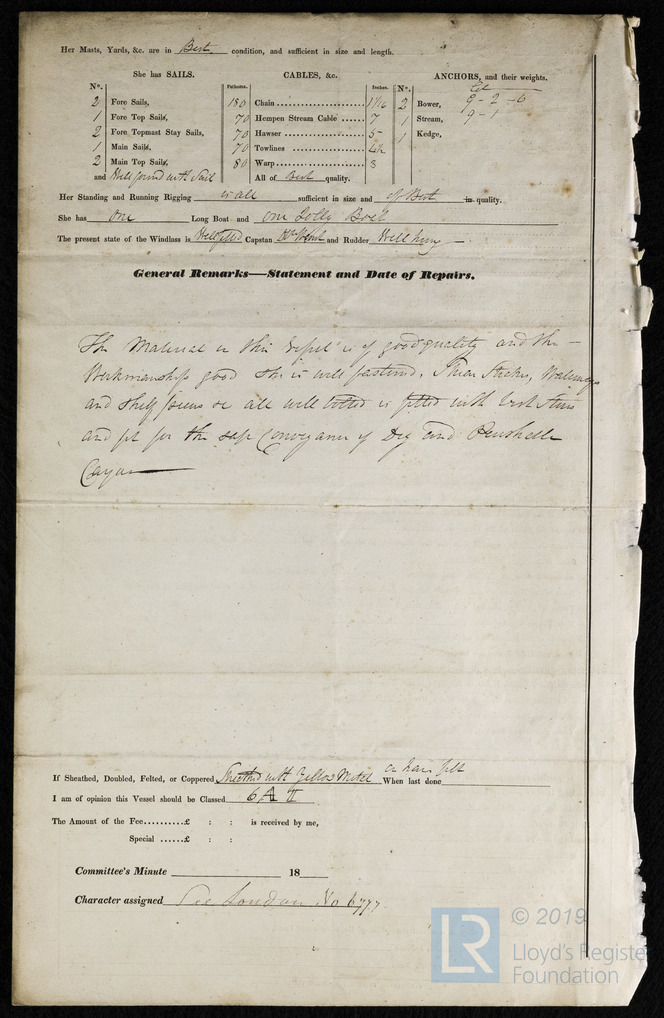 Her Masts, Yards, &c. are in Best condition, and sufficient in size and length.
She has SAILS. CABLES, &c. ANCHORS, and their weights.
No. Fathoms. Inches. No.
2 Fore Sails, 180 Chain 1 1/16 2 Bower, 9 - 2 - 6
1 Fore Top Sails, 70 Hempen Stream Cable 7 1 Stream, 9 - 1
2 Fore Topmast Stay Sails, 70 Hawser 5 1 Kedge,
1 Main Sails, 70 Towlines 4½
2 Main Top Sails, 80 Warp 3
and Well found with Sail All of Best quality.
Her Standing and Running Rigging is all sufficient in size and of Best in quality.
She has One Long Boat and one Jolly Boat
The present state of the Windlass is Well fitted Capstan and Rudder Well hung
General Remarks—Statement and Date of Repairs.
The Material in this Vessel is of good quality and the
Workmanship good She is well fastened.
and Shelf all well bolted is fitted with
and fit for the safe Conveyance of Dry and Perishable
Cargo
If Sheathed, Doubled, Felted, or Coppered Sheathed with Yellow Metal on hair felt When last done
I am of opinion this Vessel should be Classed 6 A
The Amount of the Fee..........£ : : is received by me,
Special ......£ : :
Committee's Minute 18
Character assigned See London No 6777
LR
© 2019
Lloyd's Register
Foundation